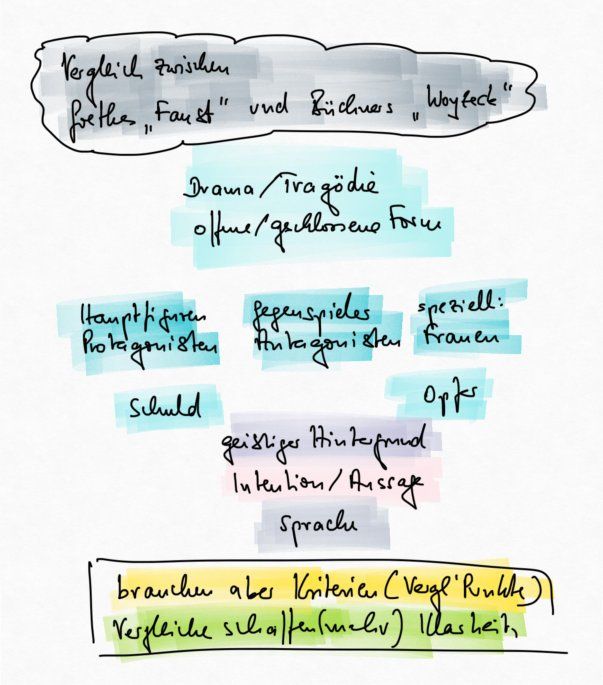 Vergleich zwischen
Goethes „Faust" und Büchners „Woyzeck"
Drama/Tragödie
offene/geschlossene Form
Hauptfiguren Gegenspieler speziell:
Protagonisten Antagonisten Frauen
Schuld Opfer
geistiger Hintergrund
Intention/Aussage
Sprache
brauchen aber Kriterien (Vergl'Punkte)
Vergleiche schaffen (mehr) Klarheit,